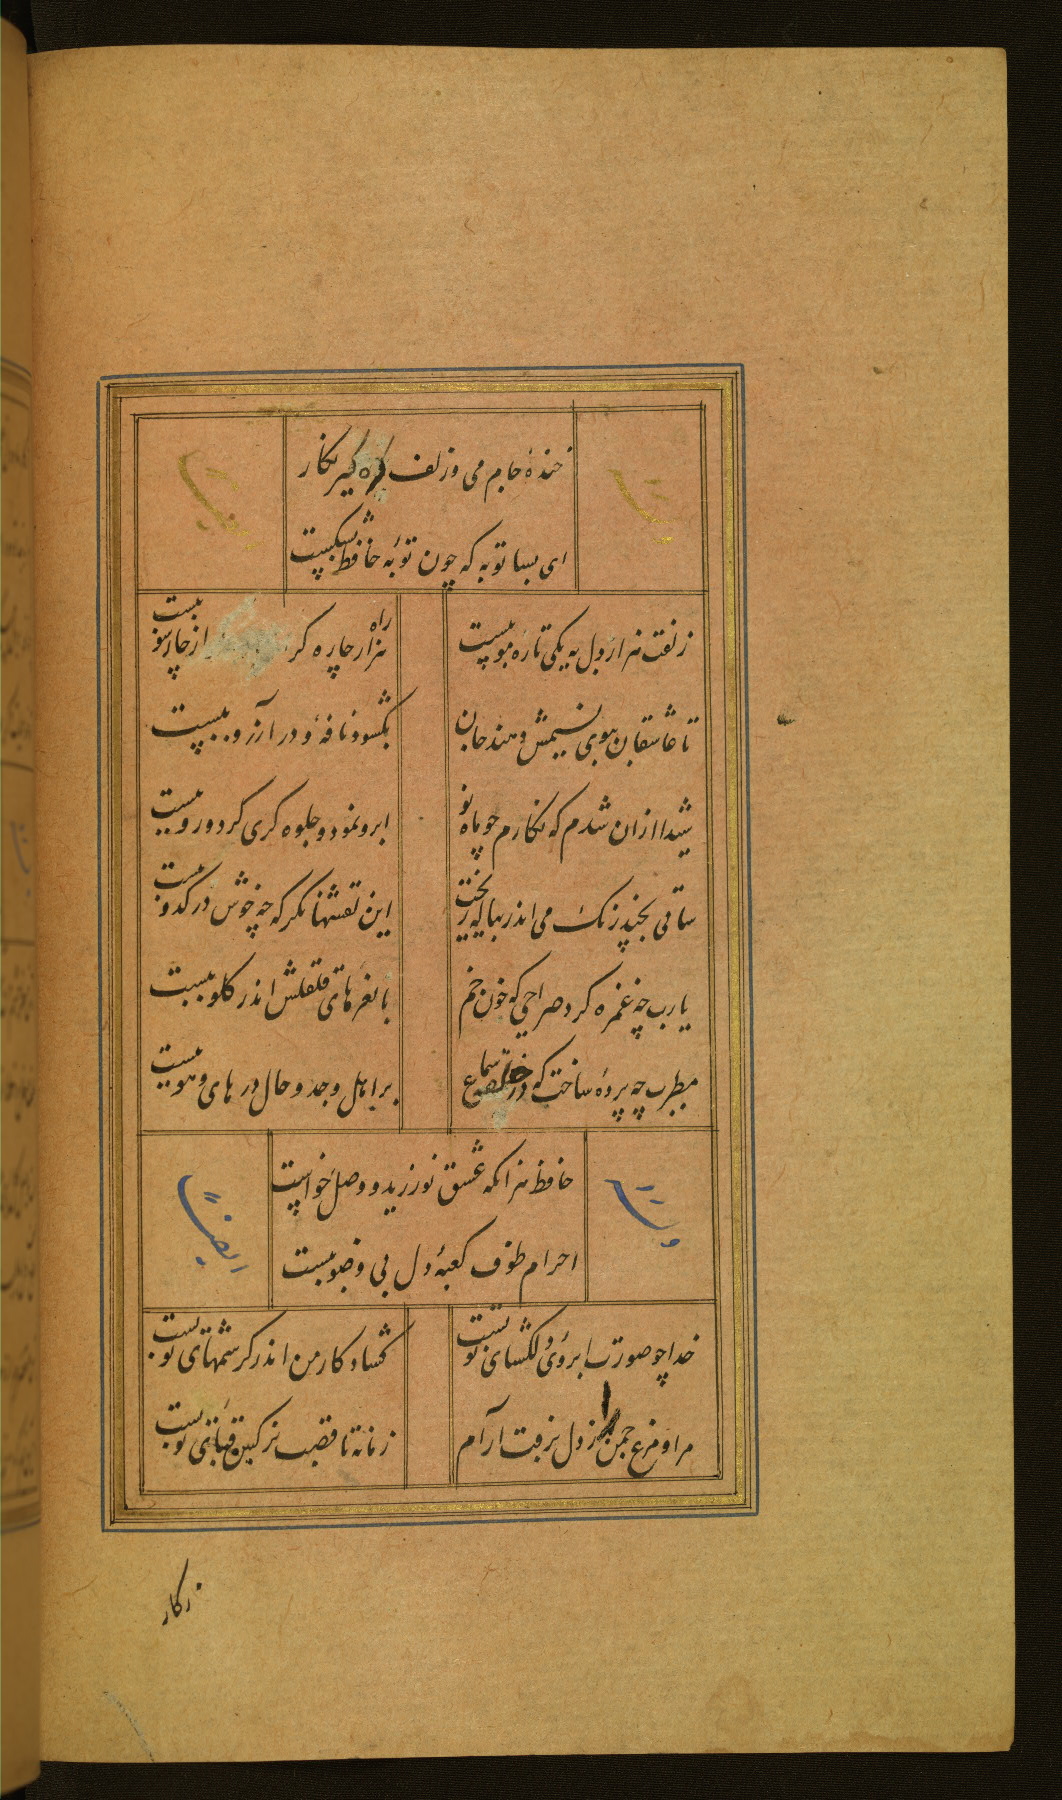 خندهٔ جام می و زلف گره گیر نگار
ای بسا توبه که چون توبهٔ حافظ بشکست
وله
ایضاً
زلفت هزار دل به یکی تاره مو ببست
راه هزار چاره گر از چار سو ببست
تا عاشقان ببوی نسیمش دهند جان
بگشود نافهٔ و در آرزو ببست
شیدا ازان شدم که نگارم چو ماه نو
ابرو نمود و جلوه گری کرد و رو ببست
ساقی بچند رنگ می اندر پیاله ریخت
این نقشها نگر که چه خوش در کدو ببست
یارب چه غمزه کرد صراحی که خون خم
با نغرهای قلقلش اندر گلو ببست
مطرب چه پرده ساخت که در سماع
بر اهل وجد و حال در های و هو ببست
حافظ هر انکه عشق نورزید و وصل خواست
احرام طوف کعبهٔ دل بی وضو ببست
وله
ایضاً
خدا چو صورت ابروی دلگشای تو بست
گشاد کار من اندر کرشمهای تو بست
مرا و مرغ چمن را ز دل برفت آرام
زمانه تا قصب نرگسین قبای تو بست
زکار